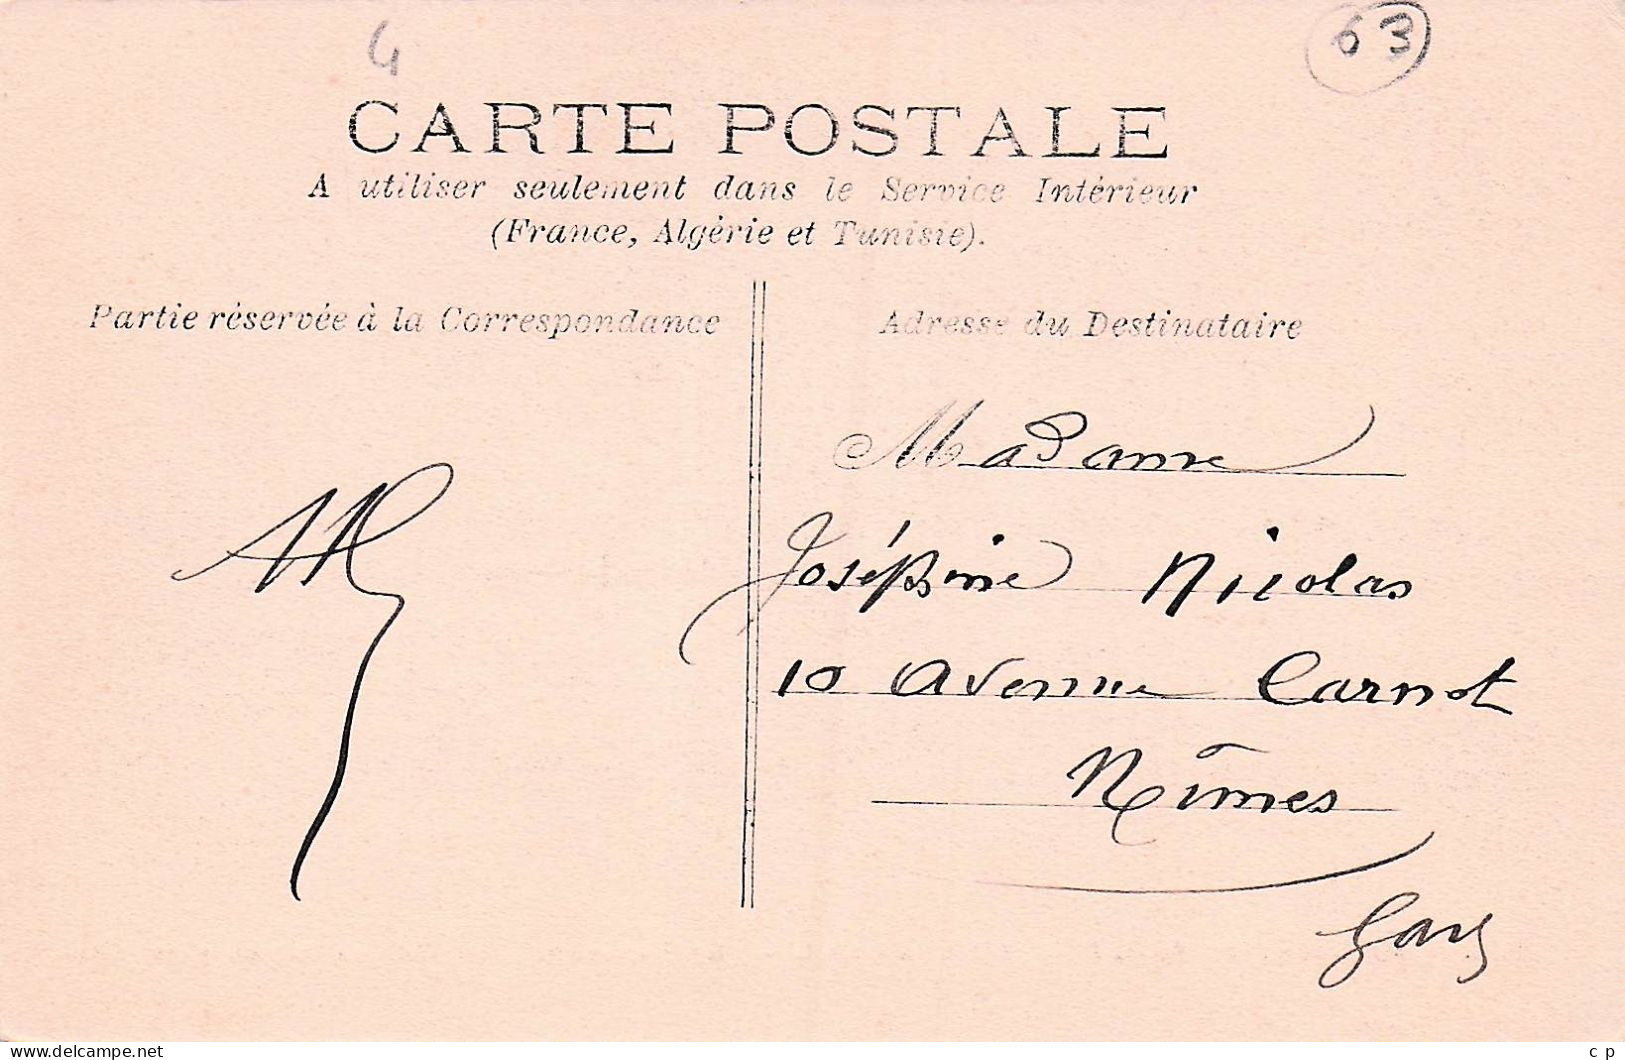 4
63
CARTE POSTALE
A utiliser seulement dans le Service Intérieur
(France, Algérie et Tunisie).
Partie réservée à la Correspondance
Adresse du Destinataire
Madame
Joséphine Nicolas
10 Avenue Carnot
Nîmes
Gard
www.delcampe.net
c p